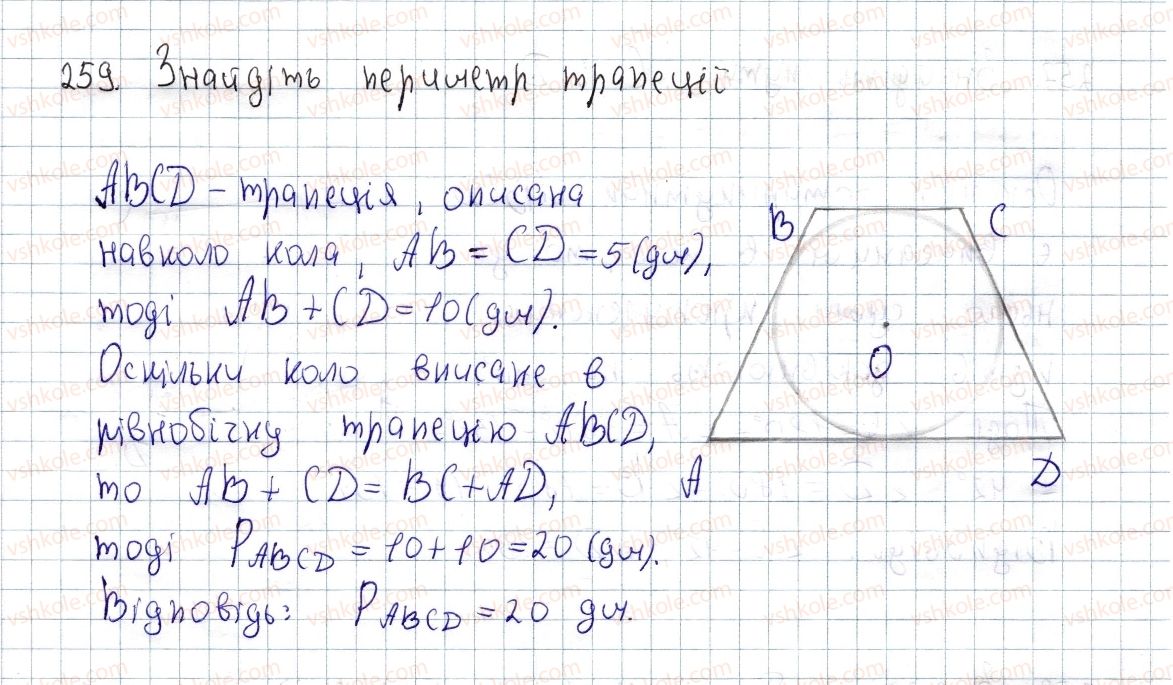 259. Знайдіть периметр трапеції
ABCD – трапеція, описана
навколо кола, AB = CD = 5 (дм),
тоді AB + CD = 10 (дм).
Оскільки коло вписане в
рівнобічну трапецію ABCD,
то AB + CD = BC + AD,
тоді P ABCD = 10 + 10 = 20 (дм).
Відповідь: P ABCD = 20 дм.
B C
O
A D
vshkole.com